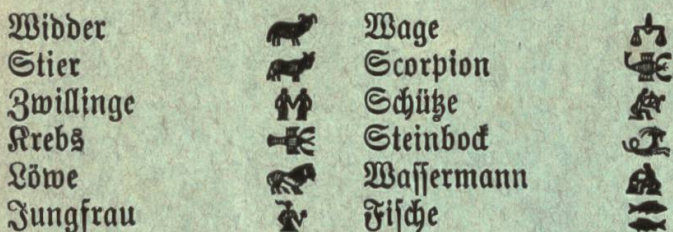 Widder
Stier
Zwillinge
Krebs
Löwe
Jungfrau
Wage
Scorpion
Schütze
Steinbock
Wassermann
Fische